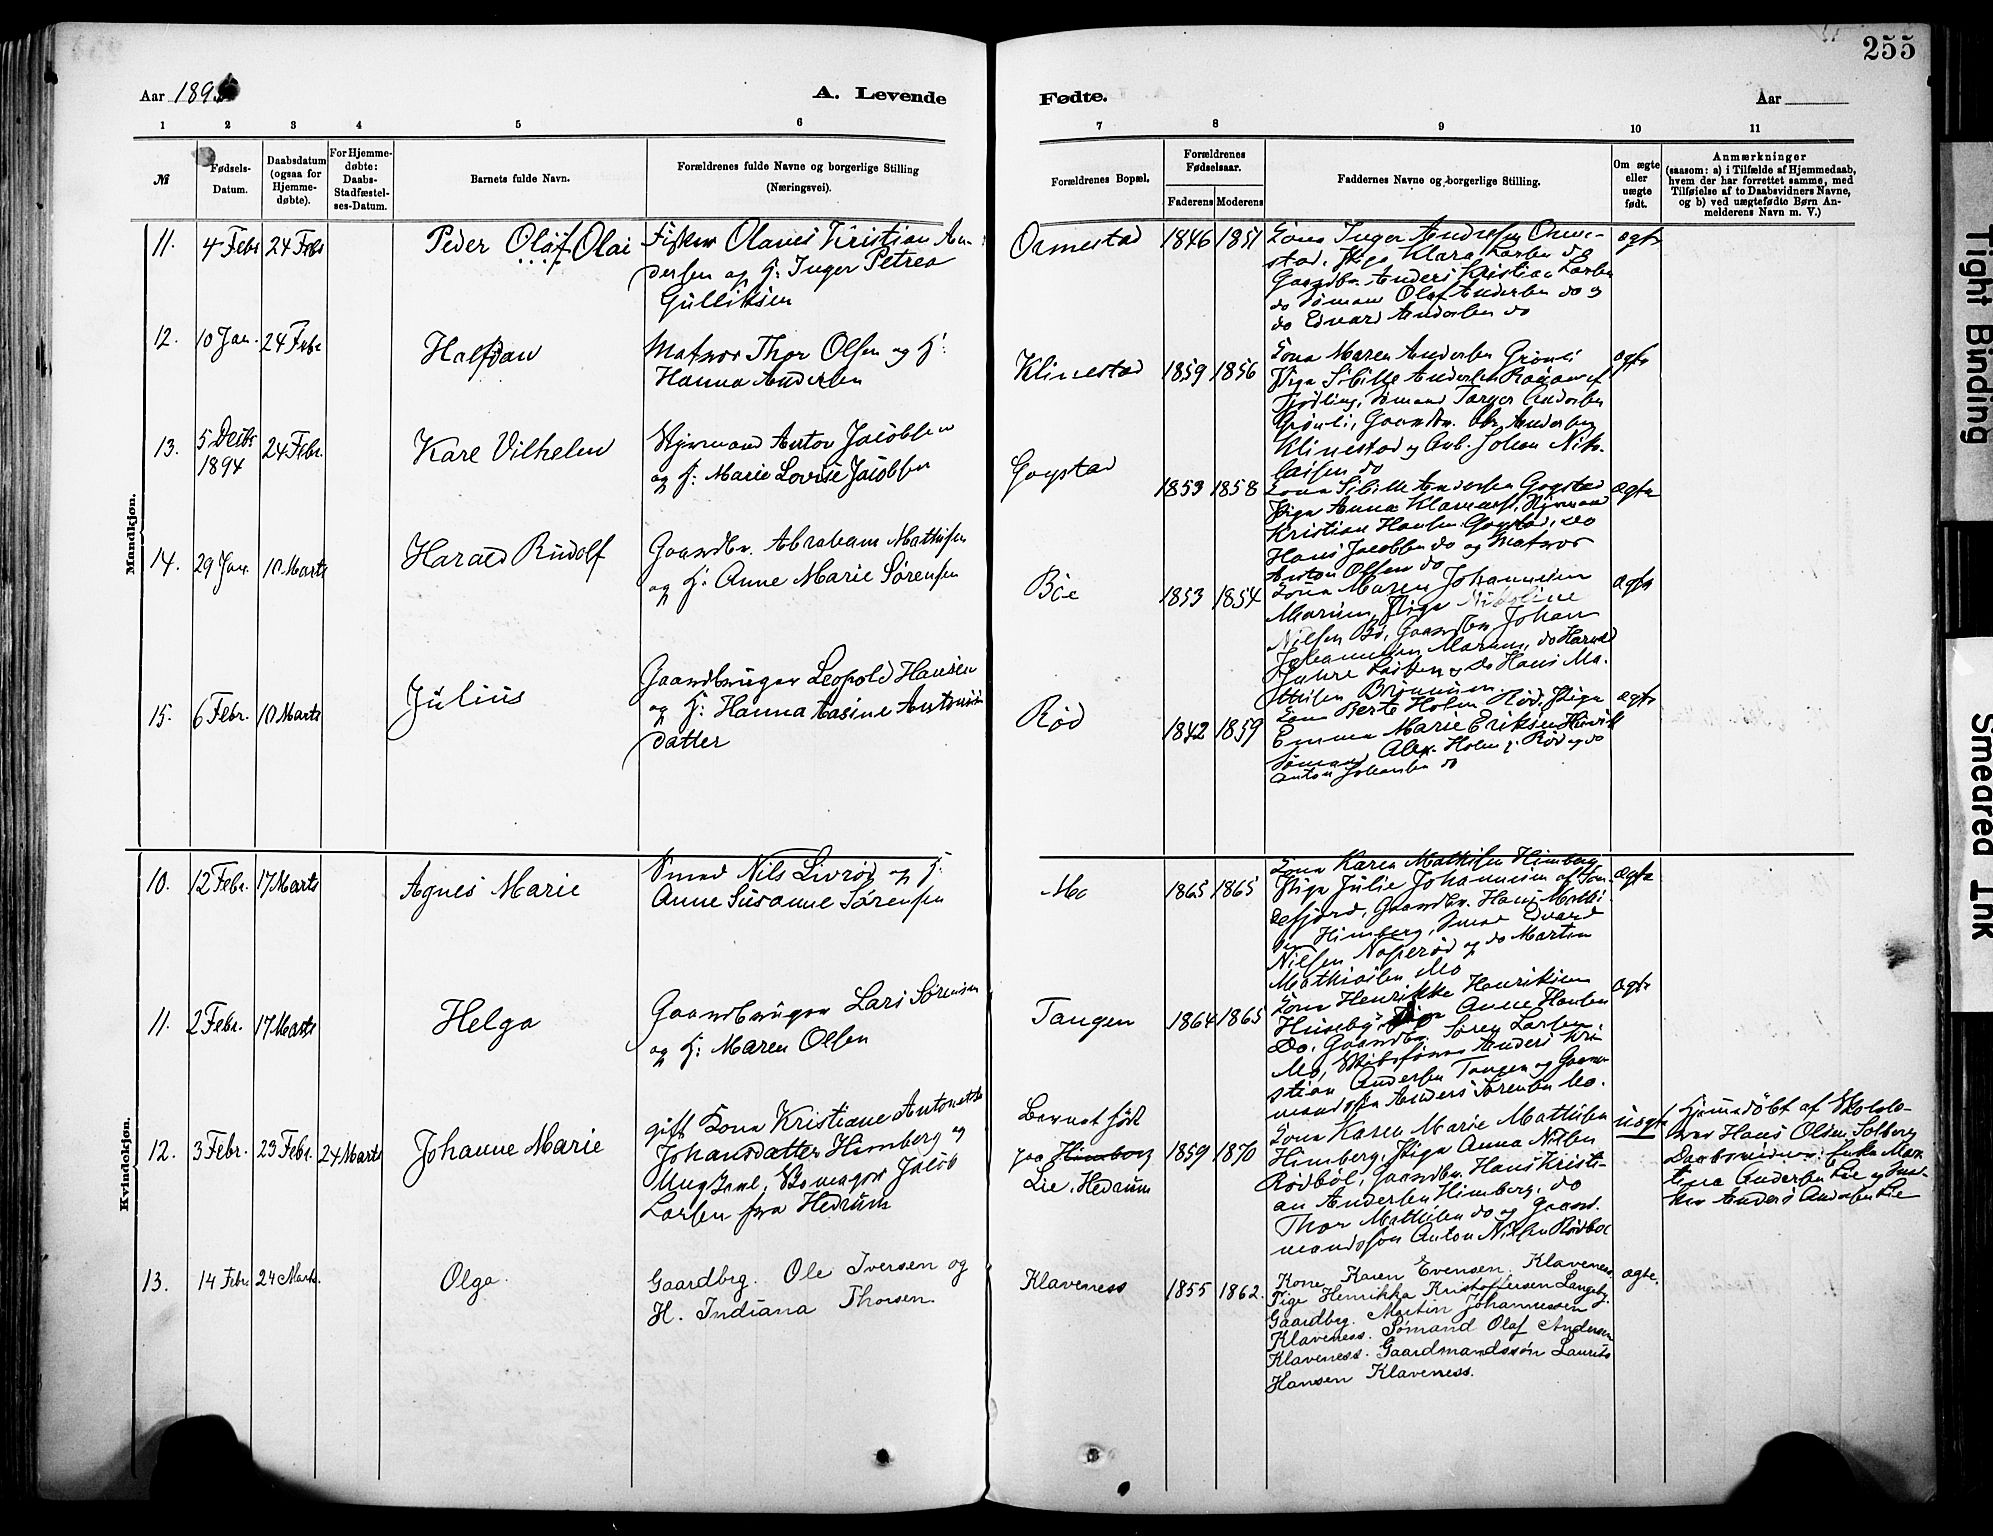 255
Aar 1895
A. Levende
Fødte.
Aar
1 2 3 4 5 6
7 8 9 10 11
№
Fødsels-
Datum.
Daabsdatum
(ogsaa for
Hjemme-
døbte).
For Hjemme-
døbte:
Daabs-
Stadfæstel-
ses-Datum.
Barnets fulde Navn.
Forældrenes fulde Navne og borgerlige Stilling
(Næringsvei).
Forældrenes Bopæl.
Forældrenes
Fødselsaar.
Faderens
Moderens
Faddernes Navne og borgerlige Stilling.
Om ægte
eller
uægte
født.
Anmærkninger
(saasom: a) i Tilfælde af Hjemmedaab,
hvem der har forrettet samme, med
Tilføielse af to Daabsvidners Navne,
og b) ved uægtefødte Børn An-
melderens Navn m. V.)
Mandkjøn.
11. 4 Febr 24 Febr
Peder Olaf Olai
Fisker Olaves Kristian An-
dersen og H: Inger Petrea
Gulliksen
Ormestad
1846 1851
Kona Inger Andresen Orme-
stad, Pige Klara Larsen do
Gaardbr. Anders Kristian Larsen
do Sømand Olaf Andersen do og
do Edvard Andersen do
ægte
12. 10 Jan. 24 Febr
Halfdan
Matros Thor Olsen og H:
Hanna Andersen
Klinestad
1859 1856
Kona Maren Andersen Grønli
Pige Sibille Andersen
Sømand Torger Andersen
Grønli, Gaardbr. Andersen
Klinestad og Arb. Johan Niko-
laisen do
ægte
13. 5 Decbr 1894 24 Febr.
Kare Vilhelm
Styrmand Anton Jacobsen
og H: Marie Lovise Jacobsen
Gogstad
1853 1858
Kona Sibille Andersen Gogstad
Pige Anna Klavenes, Styrmand
Kristian Hansen Gogstad, do
Hans Jacobsen do og Matros
Anton Olsen do
ægte
14. 29 Jan. 10 Marts
Harald Rudolf
Gaardbr. Abraham Mathisen
og H: Anne Marie Sørensen
Bøe
1853 1854
Kona Maren Johannesen
Marum, Pige Nikoline
Nilsen Bø, Gaardbr. Johan
Johannesen Marum, do Harald
do Hans Ma-
thisen
ægte
15. 6 Febr. 10 Marts
Julius
Gaardbruger Leopold Hansen
og H: Hanna Aasine Antonius
datter
Rød
1842 1859
Kona Berte Holm Rød, Pige
Emma Marie Eriksen
Sømand Alex. Holm, Rød og do
Anton Johansen do
ægte
Kvindekjøn.
10. 12 Febr. 17 Marts
Agnes Marie
Smed Nils Livrød og H:
Anne Susanne Sørensen
Mo
1865 1865
Kona Karen Mathisen Himberg
Pige Julie Johannesen af San-
defjord, Gaardbr. Hans Mathi-
sen Himberg, Smed Edvard
Nilsen Napperød og do Martin
Mathiasen Mo
ægte
11. 2 Febr. 17 Marts
Helga
Gaardbruger Lars Sørensen
og H: Maren Olsen
Tangen
1864 1865
Kona Henrikke Henriksen
Huseby, Pige Anne Hansen
Do, Gaardbr. Søren Larsen
Mo, Anders Kri-
stian Andersen Tangen og Gaard-
mandssøn Anders Sørensen Mo.
ægte
12. 3 Febr. 23 Febr. 24 Marts
Johanne Marie
gift Kona Kristiane Antonette
Johansdatter Himberg og
Ungkarl, Skomager Jakob
Larsen fra Hedrum
Barnet født
paa Himberg
Lie, Hedrum
1859 1870
Kona Karen Marie Mathisen
Himberg, Pige Anna Nilsen
Rødbøl, Gaardbr. Hans Kristi-
an Andersen Himberg, do
Thor Mathisen do og Gaard-
mandssøn Anton Nilsen Rødbøl
uægte
Hjemmedøbt af Skolelæ-
rer Hans Olsen Solberg
Daabsvidner: Enke Mar-
tine Andersen Lie og
Anders Andersen Lie
13. 14 Febr. 24 Marts.
Olga.
Gaardbrg. Ole Iversen og
H. Indiana Thorsen.
Klaveness
1855 1862.
Kone Karen Evensen, Klaveness.
Pige Henrikka Kristoffersen Langeby.
Gaardbrg. Martin Johannessen
Klaveness. Sømand Olaf Andersen
Klaveness. Gaardmandssøn Laurits
Hansen Klaveness.
ægte.
Tight Binding
Smeared Ink